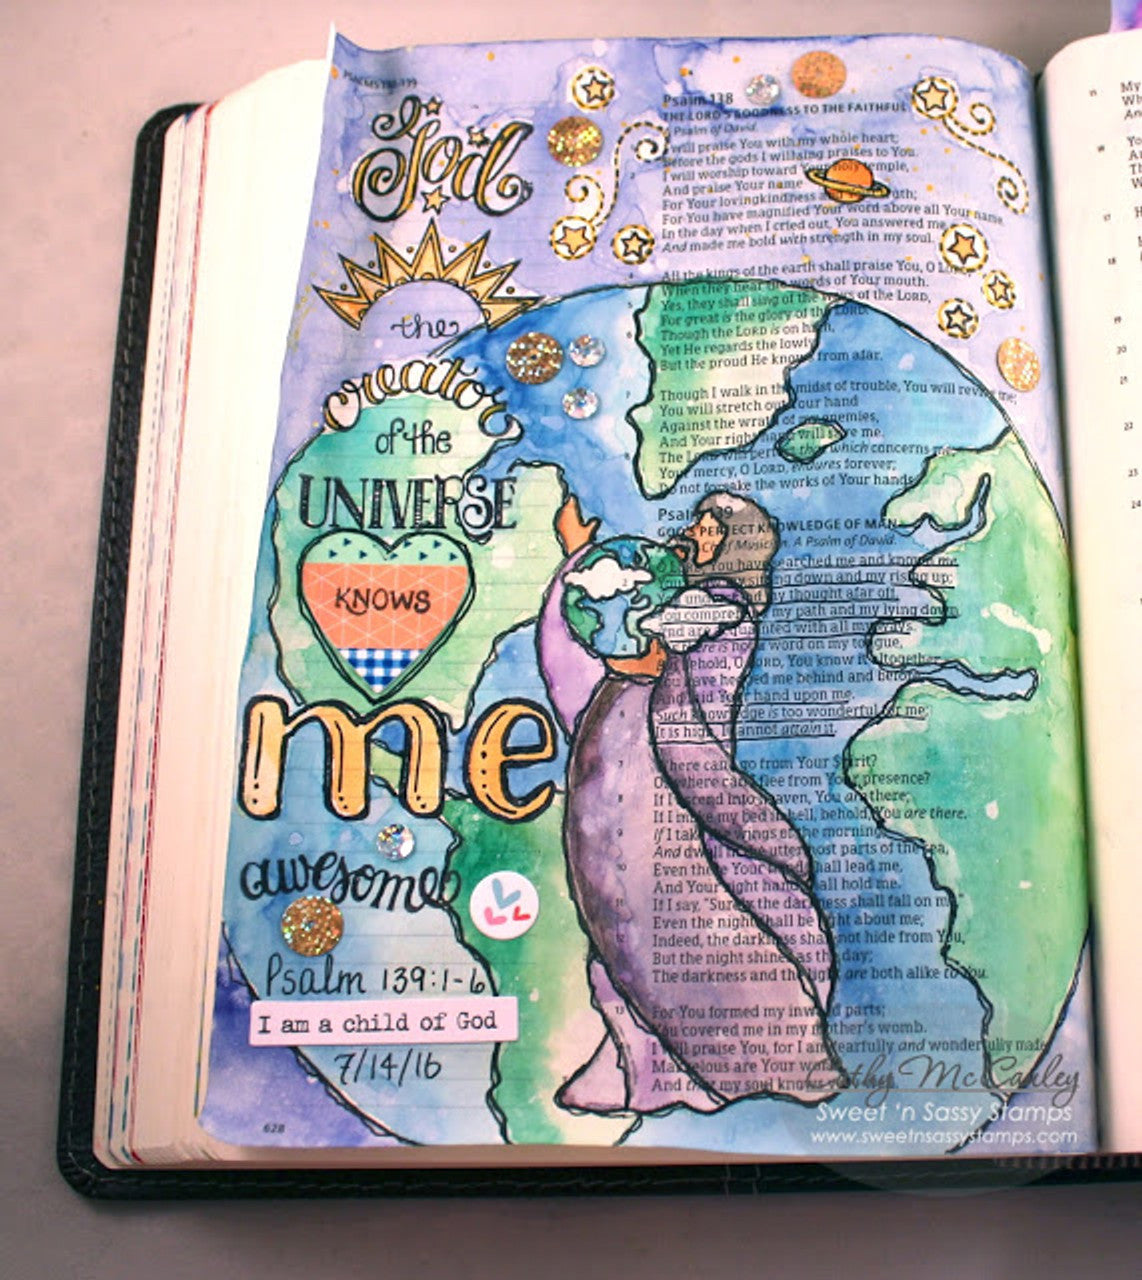 PSALMS 138-139
God
the
creator
of the
UNIVERSE
KNOWS
me
awesome
Psalm 139:1-6
I am a child of God
7/14/16
628
Psalm 138
THE LORD'S GOODNESS TO THE FAITHFUL
A Psalm of David.
I will praise You with my whole heart;
Before the gods I will sing praises to You.
2 I will worship toward Your holy temple,
And praise Your name
For Your lovingkindness and
For You have magnified Your word above all Your name.
3 In the day when I cried out, You answered me,
And made me bold with strength in my soul.
4 All the kings of the earth shall praise You, O LORD,
When they hear the words of Your mouth.
5 Yes, they shall sing of the ways of the LORD,
For great is the glory of the LORD.
6 Though the LORD is on high,
Yet He regards the lowly;
But the proud He knows from afar.
7 Though I walk in the midst of trouble, You will revive me;
You will stretch out Your hand
Against the wrath of my enemies,
And Your right hand will save me.
8 The LORD will perfect that which concerns me;
Your mercy, O LORD, endures forever;
Do not forsake the works of Your hands.
Psalm 139
GOD'S PERFECT KNOWLEDGE OF MAN
Chief Musician. A Psalm of David.
O LORD, You have searched me and known me.
2 my sitting down and my rising up;
You understand my thought afar off.
You comprehend my path and my lying down,
And are acquainted with all my ways.
4 there is not a word on my tongue,
But behold, O LORD, You know it altogether.
You have hedged me behind and before,
And laid Your hand upon me.
6 Such knowledge is too wonderful for me;
It is high, I cannot attain it.
7 Where can I go from Your Spirit?
Or where can I flee from Your presence?
8 If I ascend into heaven, You are there;
If I make my bed in hell, behold, You are there.
9 If I take the wings of the morning,
And dwell in the uttermost parts of the sea,
10 Even there Your hand shall lead me,
And Your right hand shall hold me.
11 If I say, "Surely the darkness shall fall on me,"
Even the night shall be light about me;
12 Indeed, the darkness shall not hide from You,
But the night shines as the day;
The darkness and the light are both alike to You.
13 For You formed my inward parts;
You covered me in my mother's womb.
14 I will praise You, for I am fearfully and wonderfully made;
Marvelous are Your works,
And that my soul knows
Kathy McCauley
Sweet 'n Sassy Stamps
www.sweetnsassystamps.com